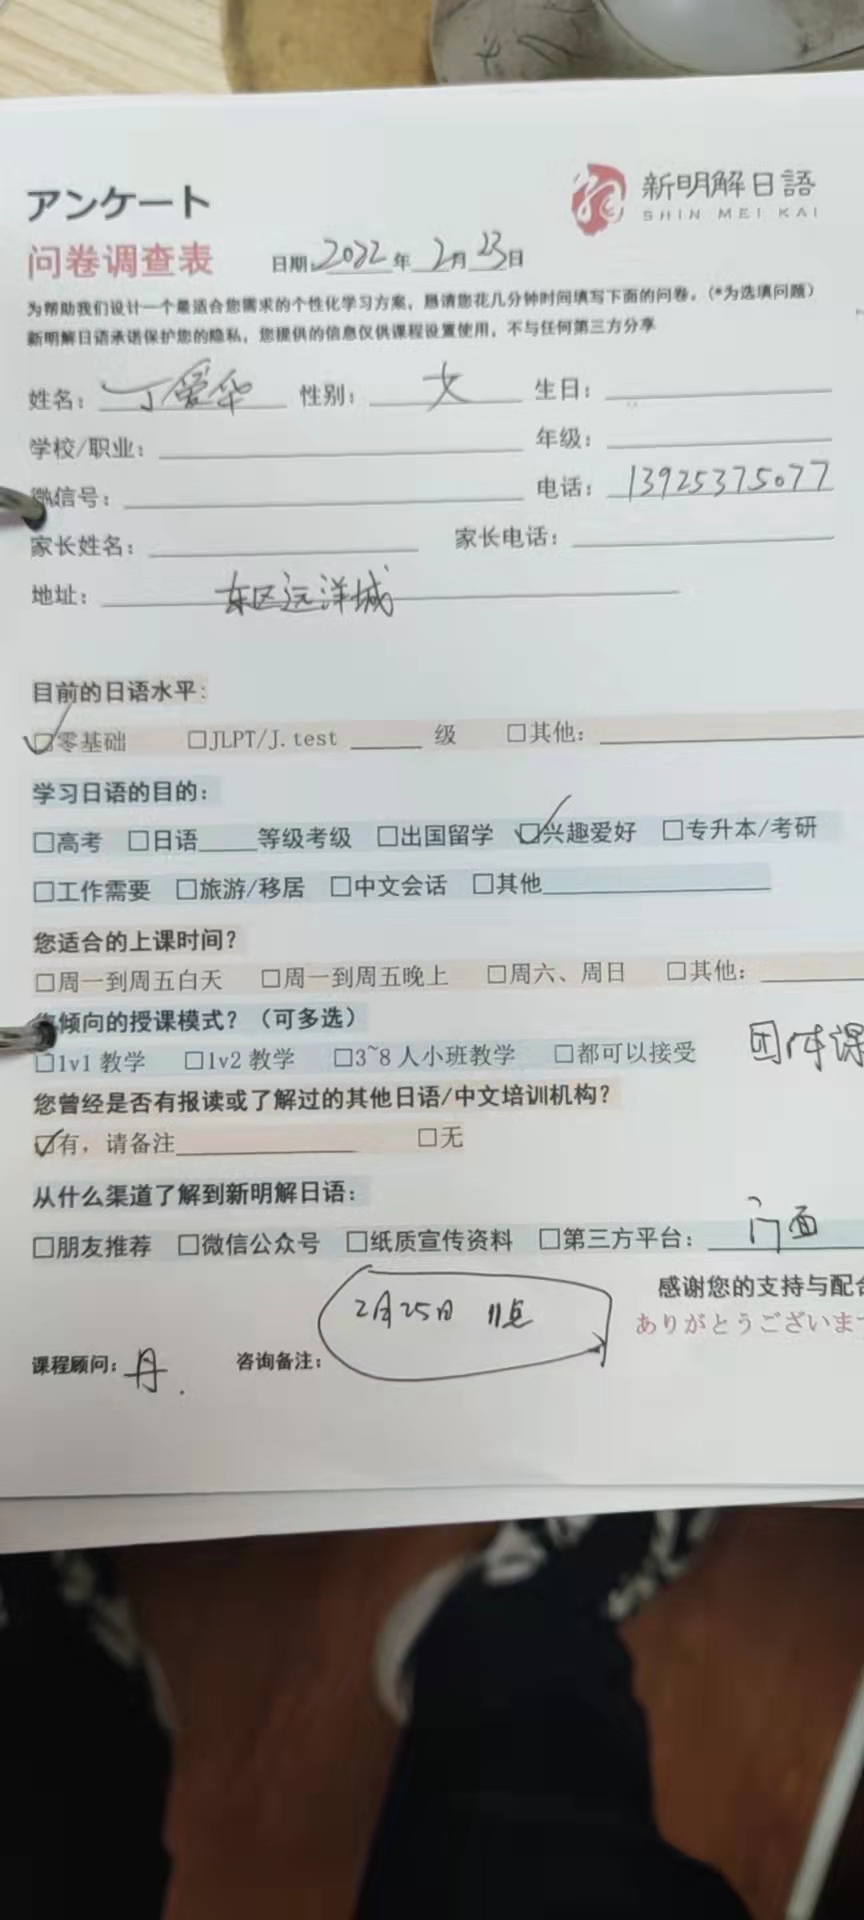 アンケート
新明解日語
SHIN MEI KAI
问卷调查表 日期 2022 年 2月 23日
为帮助我们设计一个最适合您需求的个性化学习方案，恳请您花几分钟时间填写下面的问卷。(*为选填问题)
新明解日语承诺保护您的隐私，您提供的信息仅供课程设置使用，不与任何第三方分享
姓名：丁爱华 性别：女 生日：
学校/职业： 年级：
微信号： 电话：13925375077
家长姓名： 家长电话：
地址：东区远洋城
目前的日语水平：
☑零基础 □JLPT/J.test ____ 级 □其他：
学习日语的目的：
□高考 □日语____等级考级 □出国留学 ☑兴趣爱好 □专升本/考研
□工作需要 □旅游/移居 □中文会话 □其他
您适合的上课时间？
□周一到周五白天 □周一到周五晚上 □周六、周日 □其他：
您倾向的授课模式？（可多选）
□1v1 教学 □1v2 教学 □3~8 人小班教学 □都可以接受 团体课
您曾经是否有报读或了解过的其他日语/中文培训机构？
☑有，请备注 □无
从什么渠道了解到新明解日语：
□朋友推荐 □微信公众号 □纸质宣传资料 □第三方平台：门面
感谢您的支持与配合
ありがとうございま
课程顾问：丹. 咨询备注：2月25日 11点